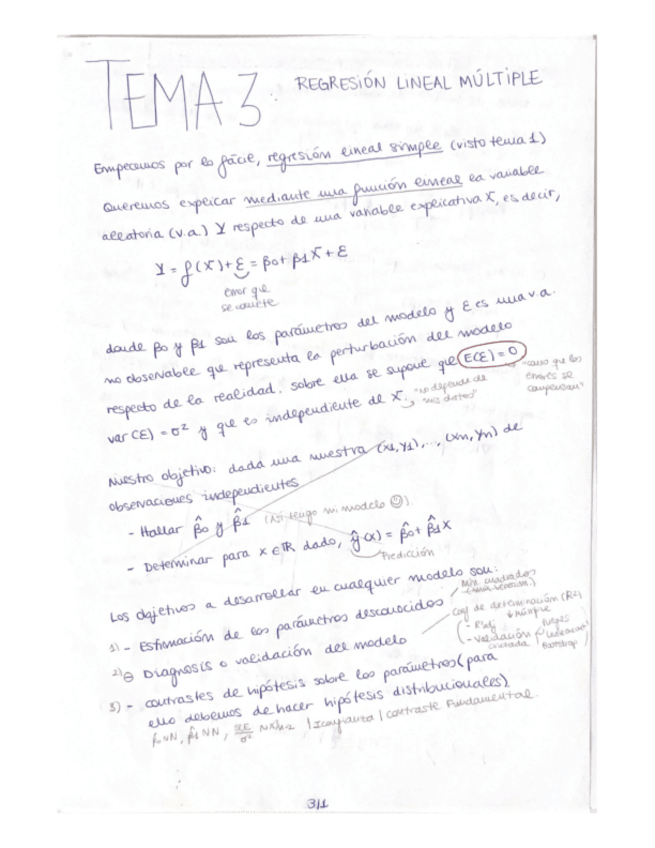 TEMA 3: REGRESIÓN LINEAL MÚLTIPLE
Empecemos por lo fácil, regresión lineal simple (visto tema 1)
Queremos explicar mediante una función lineal la variable
aleatoria (v.a.) Y respecto de una variable explicativa X, es decir,
Y = f(X) + ε = β0 + β1X + ε
error que
se comete
donde β0 y β1 son los parámetros del modelo y ε es una v.a.
no observable que representa la perturbación del modelo
respecto de la realidad, sobre ella se supone que E(ε) = 0
"como que los
errores se
compensan"
var(ε) = σ² y que es independiente de X.
"no depende de
mis datos"
Nuestro objetivo: dada una muestra (x1, y1), ..., (xn, yn) de
observaciones independientes
- Hallar β̂0 y β̂1 (Así tengo mi modelo ☺).
- Determinar para x ∈ ℝ dado, ŷ(x) = β̂0 + β̂1x
Predicción
Los objetivos a desarrollar en cualquier modelo son:
1) - Estimación de los parámetros desconocidos
Mín. cuadrados
2) ⊖ Diagnosis o validación del modelo
Coef de determinación (R²)
múltiple
- R²adj
- Validación
cruzada
Bootstrap
3) - contrastes de hipótesis sobre los parámetros (para
ello debemos de hacer hipótesis distribucionales)
| contraste Fundamental.
3/1